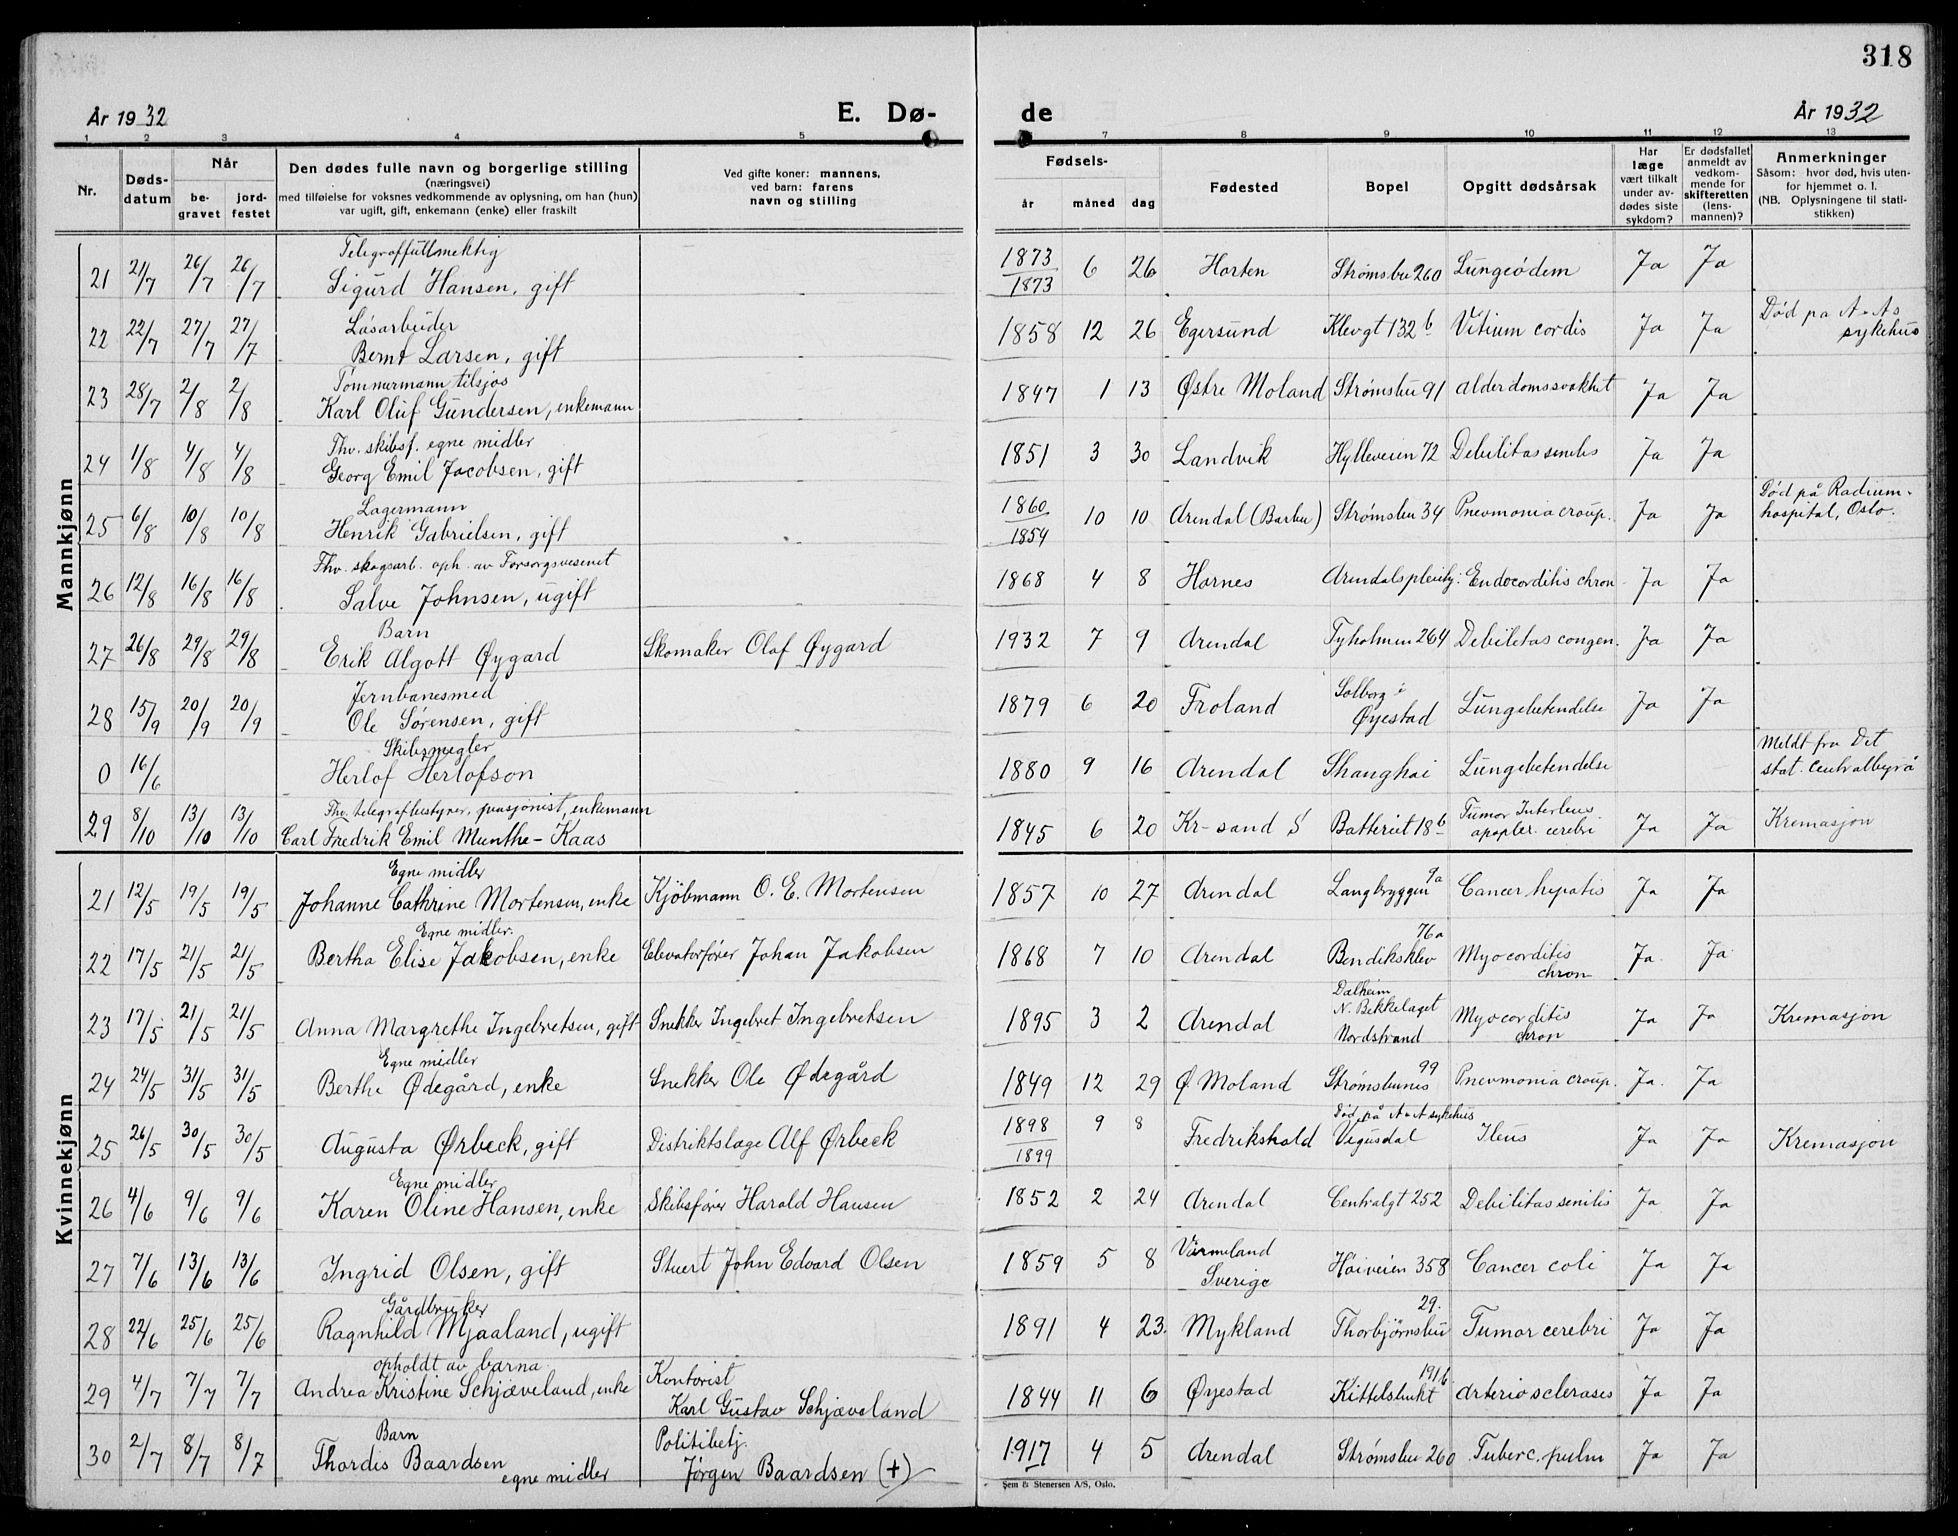 318
År 1932 E. Dø- de År 1932
1 2 3 4 5 7 8 9 10 11 12 13
Nr. Døds-datum Når be-gravet jord-festet Den dødes fulle navn og borgerlige stilling (næringsvei) med tilføielse for voksnes vedkommende av oplysning, om han (hun) var ugift, gift, enkemann (enke) eller fraskilt Ved gifte koner: mannens, ved barn: farens navn og stilling Fødsels- år måned dag Fødested Bopel Opgitt dødsårsak Har læge vært tilkalt under av-dødes siste sykdom? Er dødsfallet anmeldt av vedkom-mende for skifteretten (lens-mannen)? Anmerkninger Såsom: hvor død, hvis uten-for hjemmet o. l. (NB. Oplysningene til stati-stikken)
Mannkjønn
21 21/7 26/7 26/7 Telegraffullmektig Sigurd Hansen, gift 1873 1873 6 26 Horten Strømsbu 260 Lungeödem Ja Ja
22 22/7 27/7 27/7 Løsarbeider Bernt Larsen, gift 1858 12 26 Egersund Klevgt 132 b Vitium cordis Ja Ja Død på A-As sykehus
23 28/7 2/8 2/8 Tømmermann tilsjøs Karl Oluf Gundersen, enkemann 1847 1 13 Østre Moland Strømsbu 91 Alderdomssvakhet Ja Ja
24 1/8 4/8 4/8 Fhv. skibsf. egne midler Georg Emil Jacobsen, gift 1851 3 30 Landvik Hylleveien 72 Debilitas senilis Ja Ja
25 6/8 10/8 10/8 Lagermann Henrik Gabrielsen, gift 1860 1854 10 10 Arendal (Barbu) Strømsbu 34 Pneumonia croup. Ja Ja Død på Radium-hospital, Oslo.
26 12/8 16/8 16/8 Fhv. skogsarb. oph. av Forsorgsvesenet Salve Johnsen, ugift 1868 4 8 Hornes Arendals pleiehj. Endocarditis chron Ja Ja
27 26/8 29/8 29/8 Barn Erik Algott Øygard Skomaker Olaf Øygard 1932 7 9 Arendal Tyholmen 264 Debilitas congen. Ja Ja
28 15/9 20/9 20/9 Jernbanesmed Ole Sørensen, gift 1879 6 20 Froland Solborg i Øyestad Lungebetendelse Ja Ja
0 16/6 Skibsmegler Herlof Herlofson 1880 9 16 Arendal Shanghai Lungebetendelse Meldt fra Det stat. Centralbyrå
29 8/10 13/10 13/10 Fhv. telegrafbestyrer, pensjonist, enkemann Carl Fredrik Emil Munthe-Kaas 1845 6 20 Kr-sand S Batteriet 18 b Tumor apoplex. cerebri Ja Ja Kremasjon
Kvinnekjønn
21 12/5 19/5 19/5 Egne midler Johanne Cathrine Mortensen, enke Kjöbmann O. E. Mortensen 1857 10 27 Arendal Langbryggen 9a Cancer hepatis Ja Ja
22 17/5 21/5 21/5 Egne midler. Bertha Elise Jakobsen, enke Elevatorfører Johan Jakobsen 1868 7 10 Arendal 76a Bendiksklev Myocarditis chron Ja Ja
23 17/5 21/5 21/5 Anna Margrethe Ingebretsen, gift Snekker Ingebret Ingebretsen 1895 3 2 Arendal Dalheim N. Bekkelaget Nordstrand Myocarditis chron Ja Ja Kremasjon
24 24/5 31/5 31/5 Egne midler Berthe Ødegård, enke Snekker Ole Ødegård 1849 12 29 Ø Moland Strømsbunes 99 Pneumonia croup. Ja Ja
25 26/5 30/5 30/5 Augusta Ørbeck, gift Distriktslæge Alf Ørbeck 1898 1899 9 8 Fredrikshald Død på A-A sykehus Vegusdal Ileus Ja Ja Kremasjon
26 4/6 9/6 9/6 Egne midler Karen Oline Hansen, enke Skibsfører Harald Hansen 1852 2 24 Arendal Centralgt 252 Debilitas senilis Ja Ja
27 7/6 13/6 13/6 Ingrid Olsen, gift Stuert John Edvard Olsen 1859 5 8 Värmeland Sverige Høiveien 358 Cancer coli Ja Ja
28 22/6 25/6 25/6 Gårdbruker Ragnhild Mjaaland, ugift 1891 4 23. Mykland 29. Thorbjørnsbu Tumor cerebri Ja Ja
29 4/7 7/7 7/7 opholdt av barna Andrea Kristine Schjæveland, enke Kontorist Karl Gustav Schjæveland 1844 11 6 Øyestad 191 b Kittelsbukt Arteriosclerases Ja Ja
30 2/7 8/7 8/7 Barn Thordis Baardsen egne midler Politibetj. Jørgen Baardsen (+) 1917 4 5 Arendal Strømsbu 260 Tuberc. pulm Ja Ja
Sem & Stenersen A/S, Oslo.